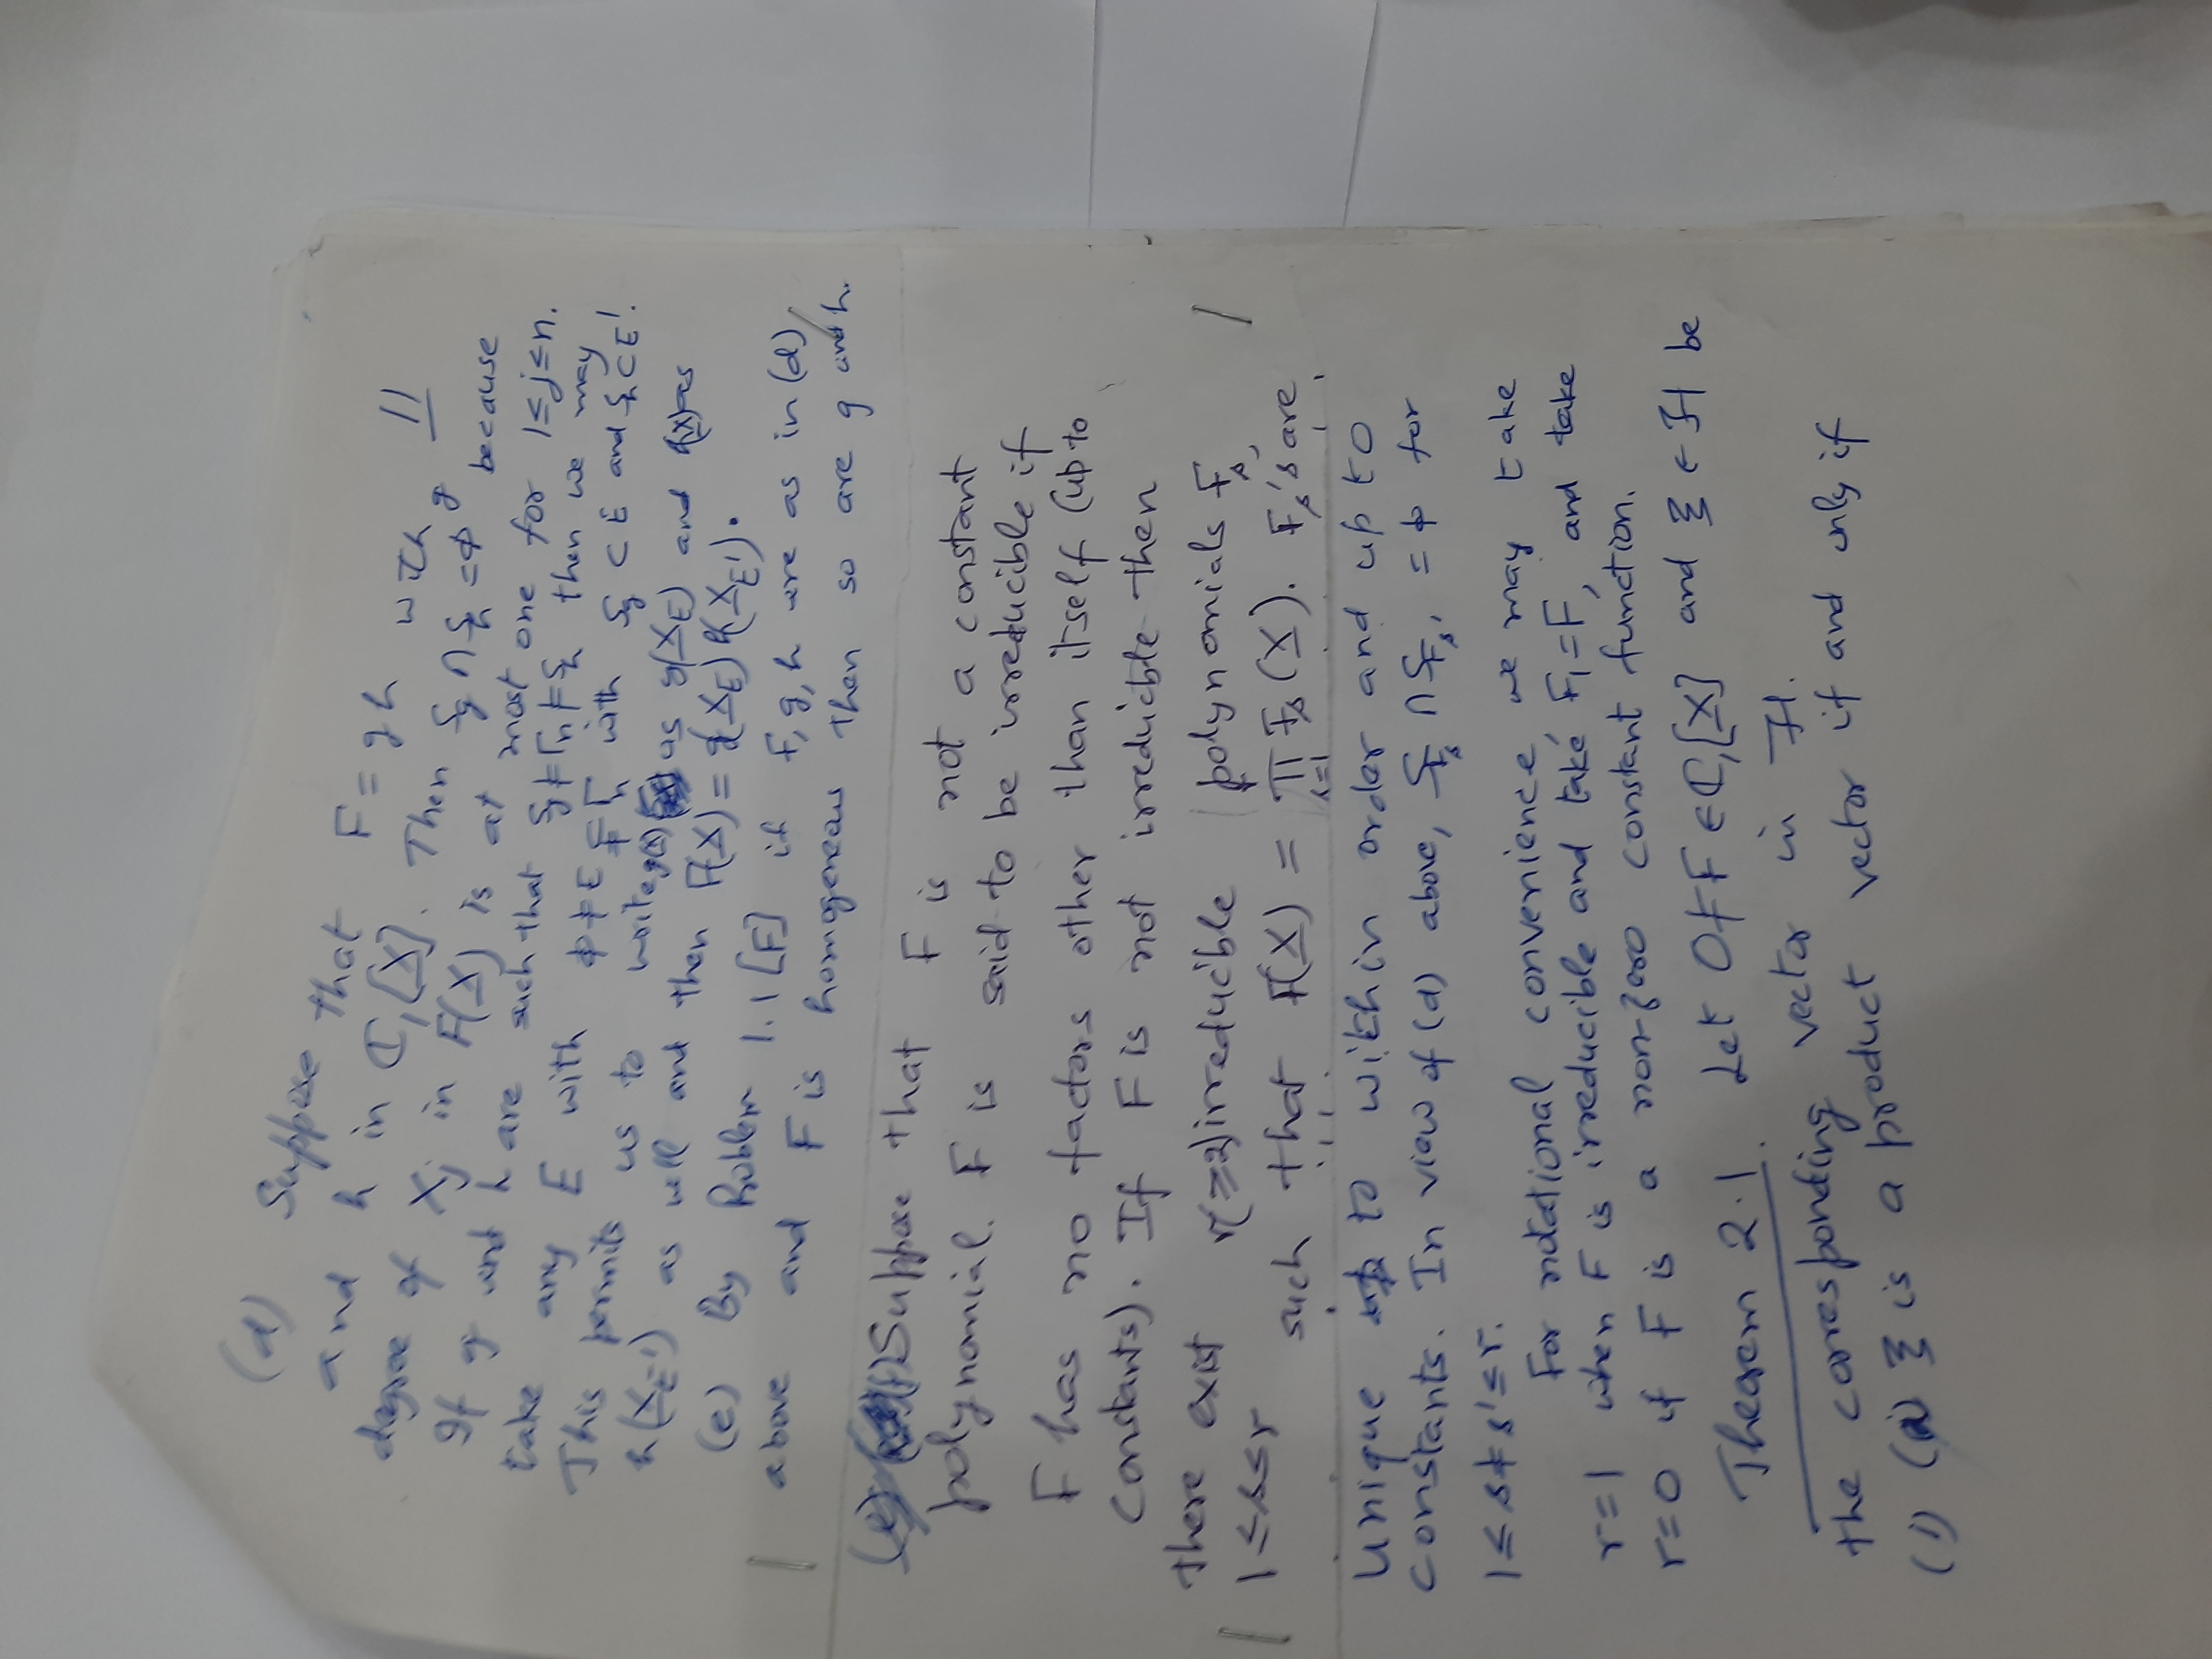 11
(d) Suppose that F = gh with g
and h in ℂ₁[X]. Then S_g ∩ S_h = ϕ because
degree of X_j in F(X) is at most one for 1≤j≤n.
If g and h are such that S_g ≠ Γ_n ≠ S_h then we may
take any E with ϕ ≠ E ⊊ Γ_n with S_g ⊂ E and S_h ⊂ E'.
This permits us to write g(X) as g(X_E) and h(X) as
h(X_E') as well and then F(X) = g(X_E) h(X_E').
(e) By Problem 1.1 [F] if F, g, h are as in (d)
above and F is homogeneous then so are g and h.
(f) Suppose that F is not a constant
polynomial. F is said to be irreducible if
F has no factors other than itself (up to
constants). If F is not irreducible then
there exist r(≥2) irreducible polynomials F_s,
1≤s≤r such that F(X) = ∏_{s=1}^r F_s(X). F_s's are
unique to within order and up to
constants. In view of (d) above, S_{F_s} ∩ S_{F_s'} = ϕ for
1≤ s ≠ s' ≤ r.
For notational convenience, we may take
r=1 when F is irreducible and take F₁=F, and take
r=0 if F is a non-zero constant function.
Theorem 2.1. Let 0 ≠ F ∈ ℂ₁[X] and ξ ∈ H be
the corresponding vector in H.
(i) (a) ξ is a product vector if and only if